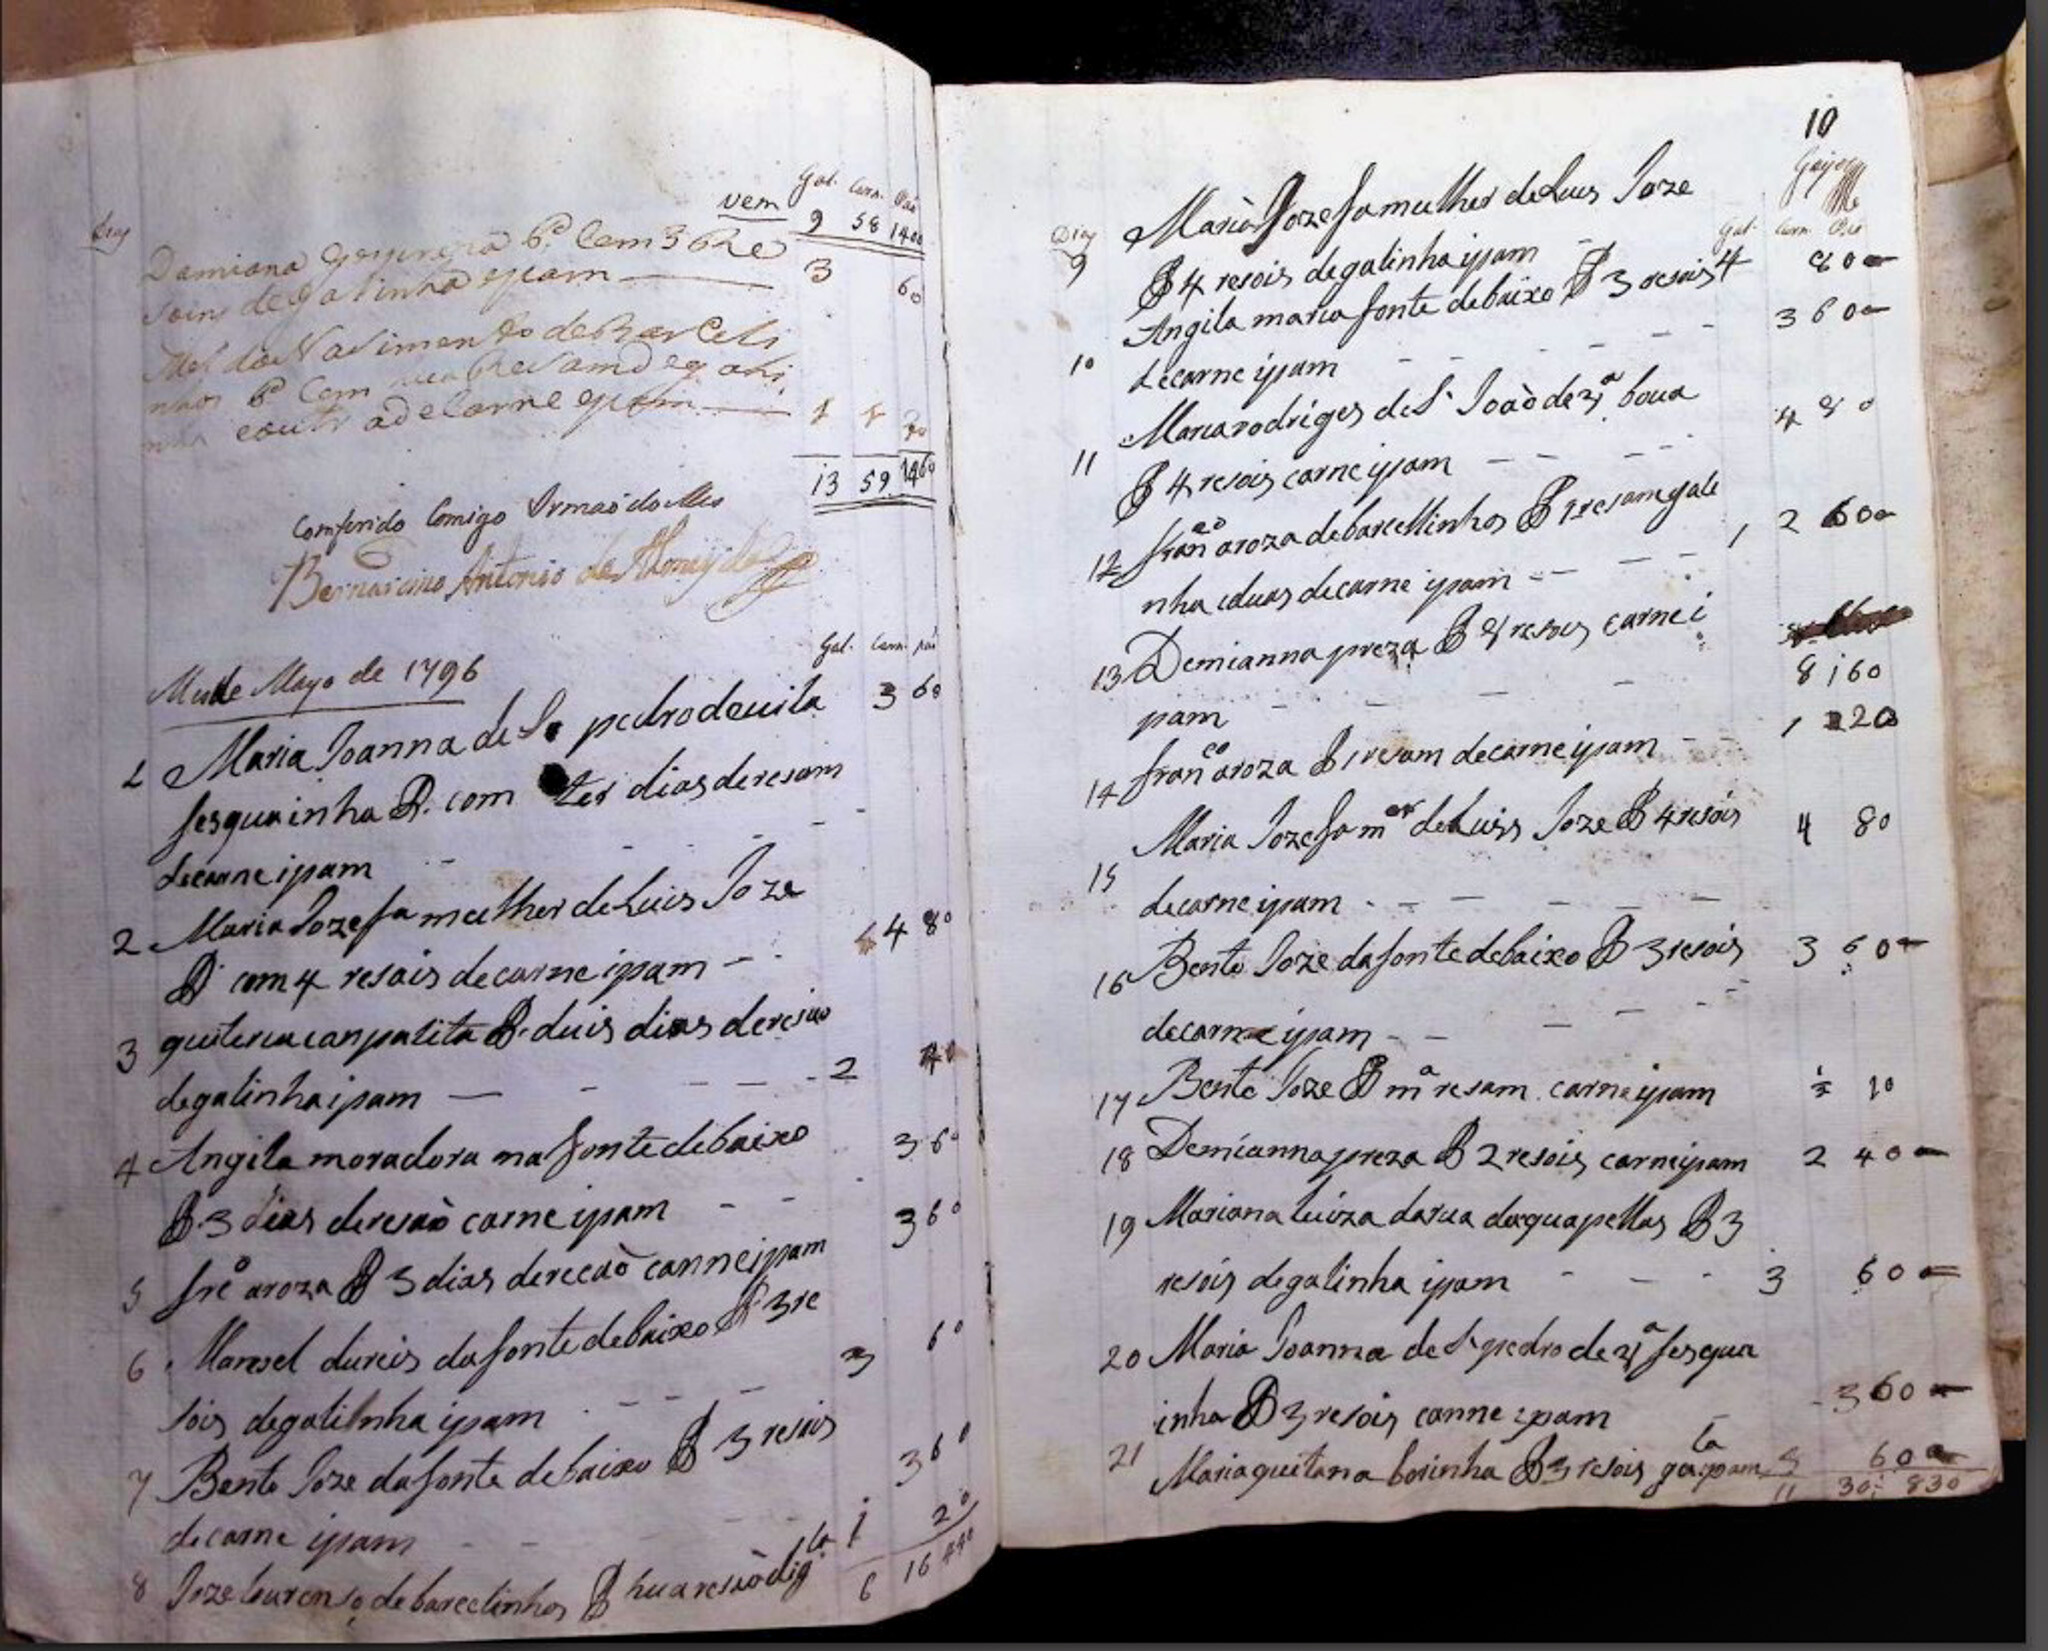 Gal. Carn. Pão
vem 9 58 1400
Dias
Damiana P. Com 3 Re
soins de galinha epam 3 60
Mel do Nasimento de Barceli
nhos P. Com hua Resam de gali
nha e outra de Carne epam 1 1 20
13 59 1460
Comferido Comigo Irmaõ do Mes
Bernarcino Antonio de Almeyda
Gal. Carn. pão
Mes de Mayo de 1796
1 Maria Joanna de S. pedro de uila 3 60
fesquainha P. com ter dias de resam
de carne ipam
2 Maria Jozefa mulher de Luis Joze
P com 4 resois de carne ipam 4 80
3 quiteria canpatita P. duis dias de resão
de galinha ipam 2 40
4 Angila moradora na fonte debaixo 3 60
P. 3 dias de resaò carne ipam
5 frco aroza P 3 dias de recaò canne ipam 3 60
6 Manoel dureis da fonte debaixo P 3 re
sois de galinha ipam 3 60
7 Bento Joze da fonte debaixo P 3 resois
de carne ipam 3 60
8 Joze lourenso de barcelinhos P hua resiò di gla 1 20
6 16 440
10
Dias Maria Jozefa mulher de Luis Joze
Gal. Carn. Pão
9 P 4 resois de galinha ipam 4 80
Angila maria fonte debaixo P 3 resois
10 de carne ipam 3 60
Maria rodriges de S. Joaò de va boua
11 P 4 resois carne ipam 4 80
12 francco aroza de barcellinhos P 1 resam gali
nha iduas de carne ipam 1 2 60
13 Demianna preza P 8 resois carne i
pam 8 160
14 francco aroza P 1 resam de carne ipam 1 20
15 Maria Jozefa mer de Luis Joze P 4 resois 4 80
de carne ipam
16 Bento Joze da fonte debaixo P 3 resois 3 60
de carne ipam
17 Bento Joze P ma resam carne ipam ½ 10
18 Demianna preza P 2 resois carne ipam 2 40
19 Mariana luiza da rua P 3
resois de galinha ipam 3 60
20 Maria Joanna de S. pedro de va fesqua
inha P 3 resois canne ipam 3 60
21 Maria guitana borinha P 3 resois gala ipam 3 60
11 30 830